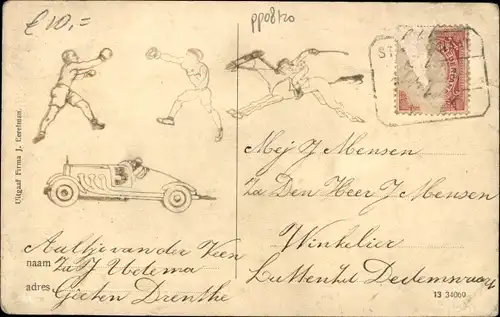 £ 10,=
pp08420
Uitgaaf Firma J. Eerelman.
Mej J Mensen
Za Den Heer J Mensen
Winkelier
Luttenhul Dedemsvaart
Aaltje van der Veen
naam Za J Uelema
adres Gieten Drenthe
13 34000